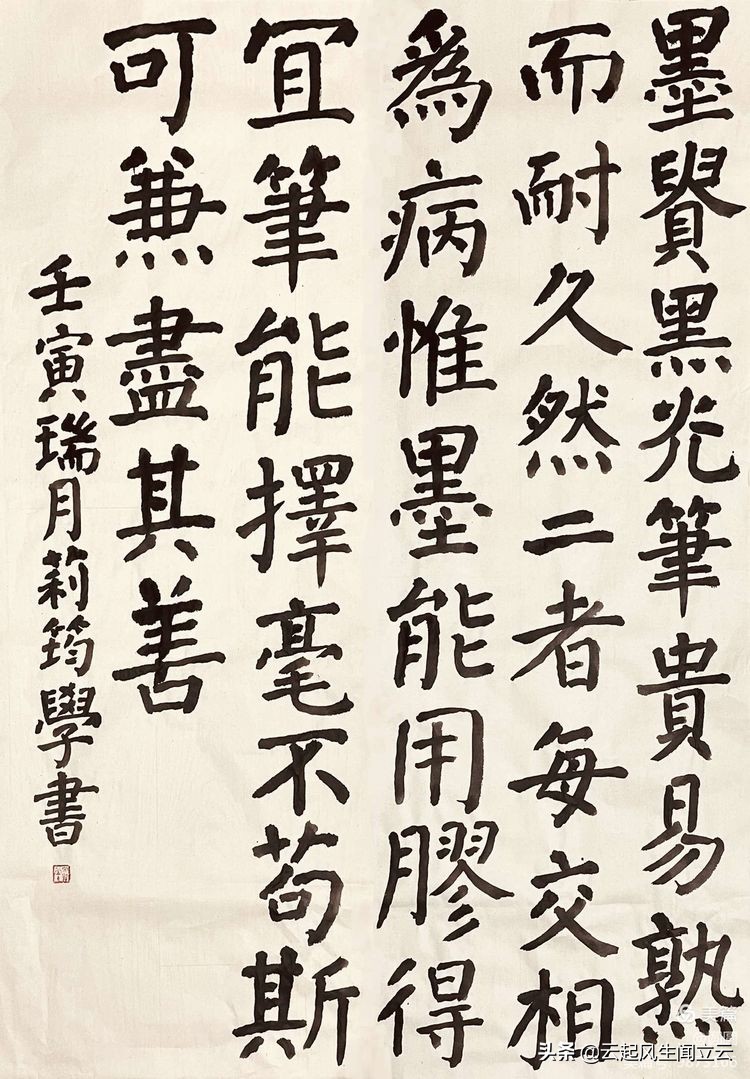 墨貴黑光筆貴易熟
而耐久然二者每交相
為病惟墨能用膠得
宜筆能擇毫不苟斯
可兼盡其善
壬寅瑞月莉筠學書
美篇
头条 @云起风生闻立云